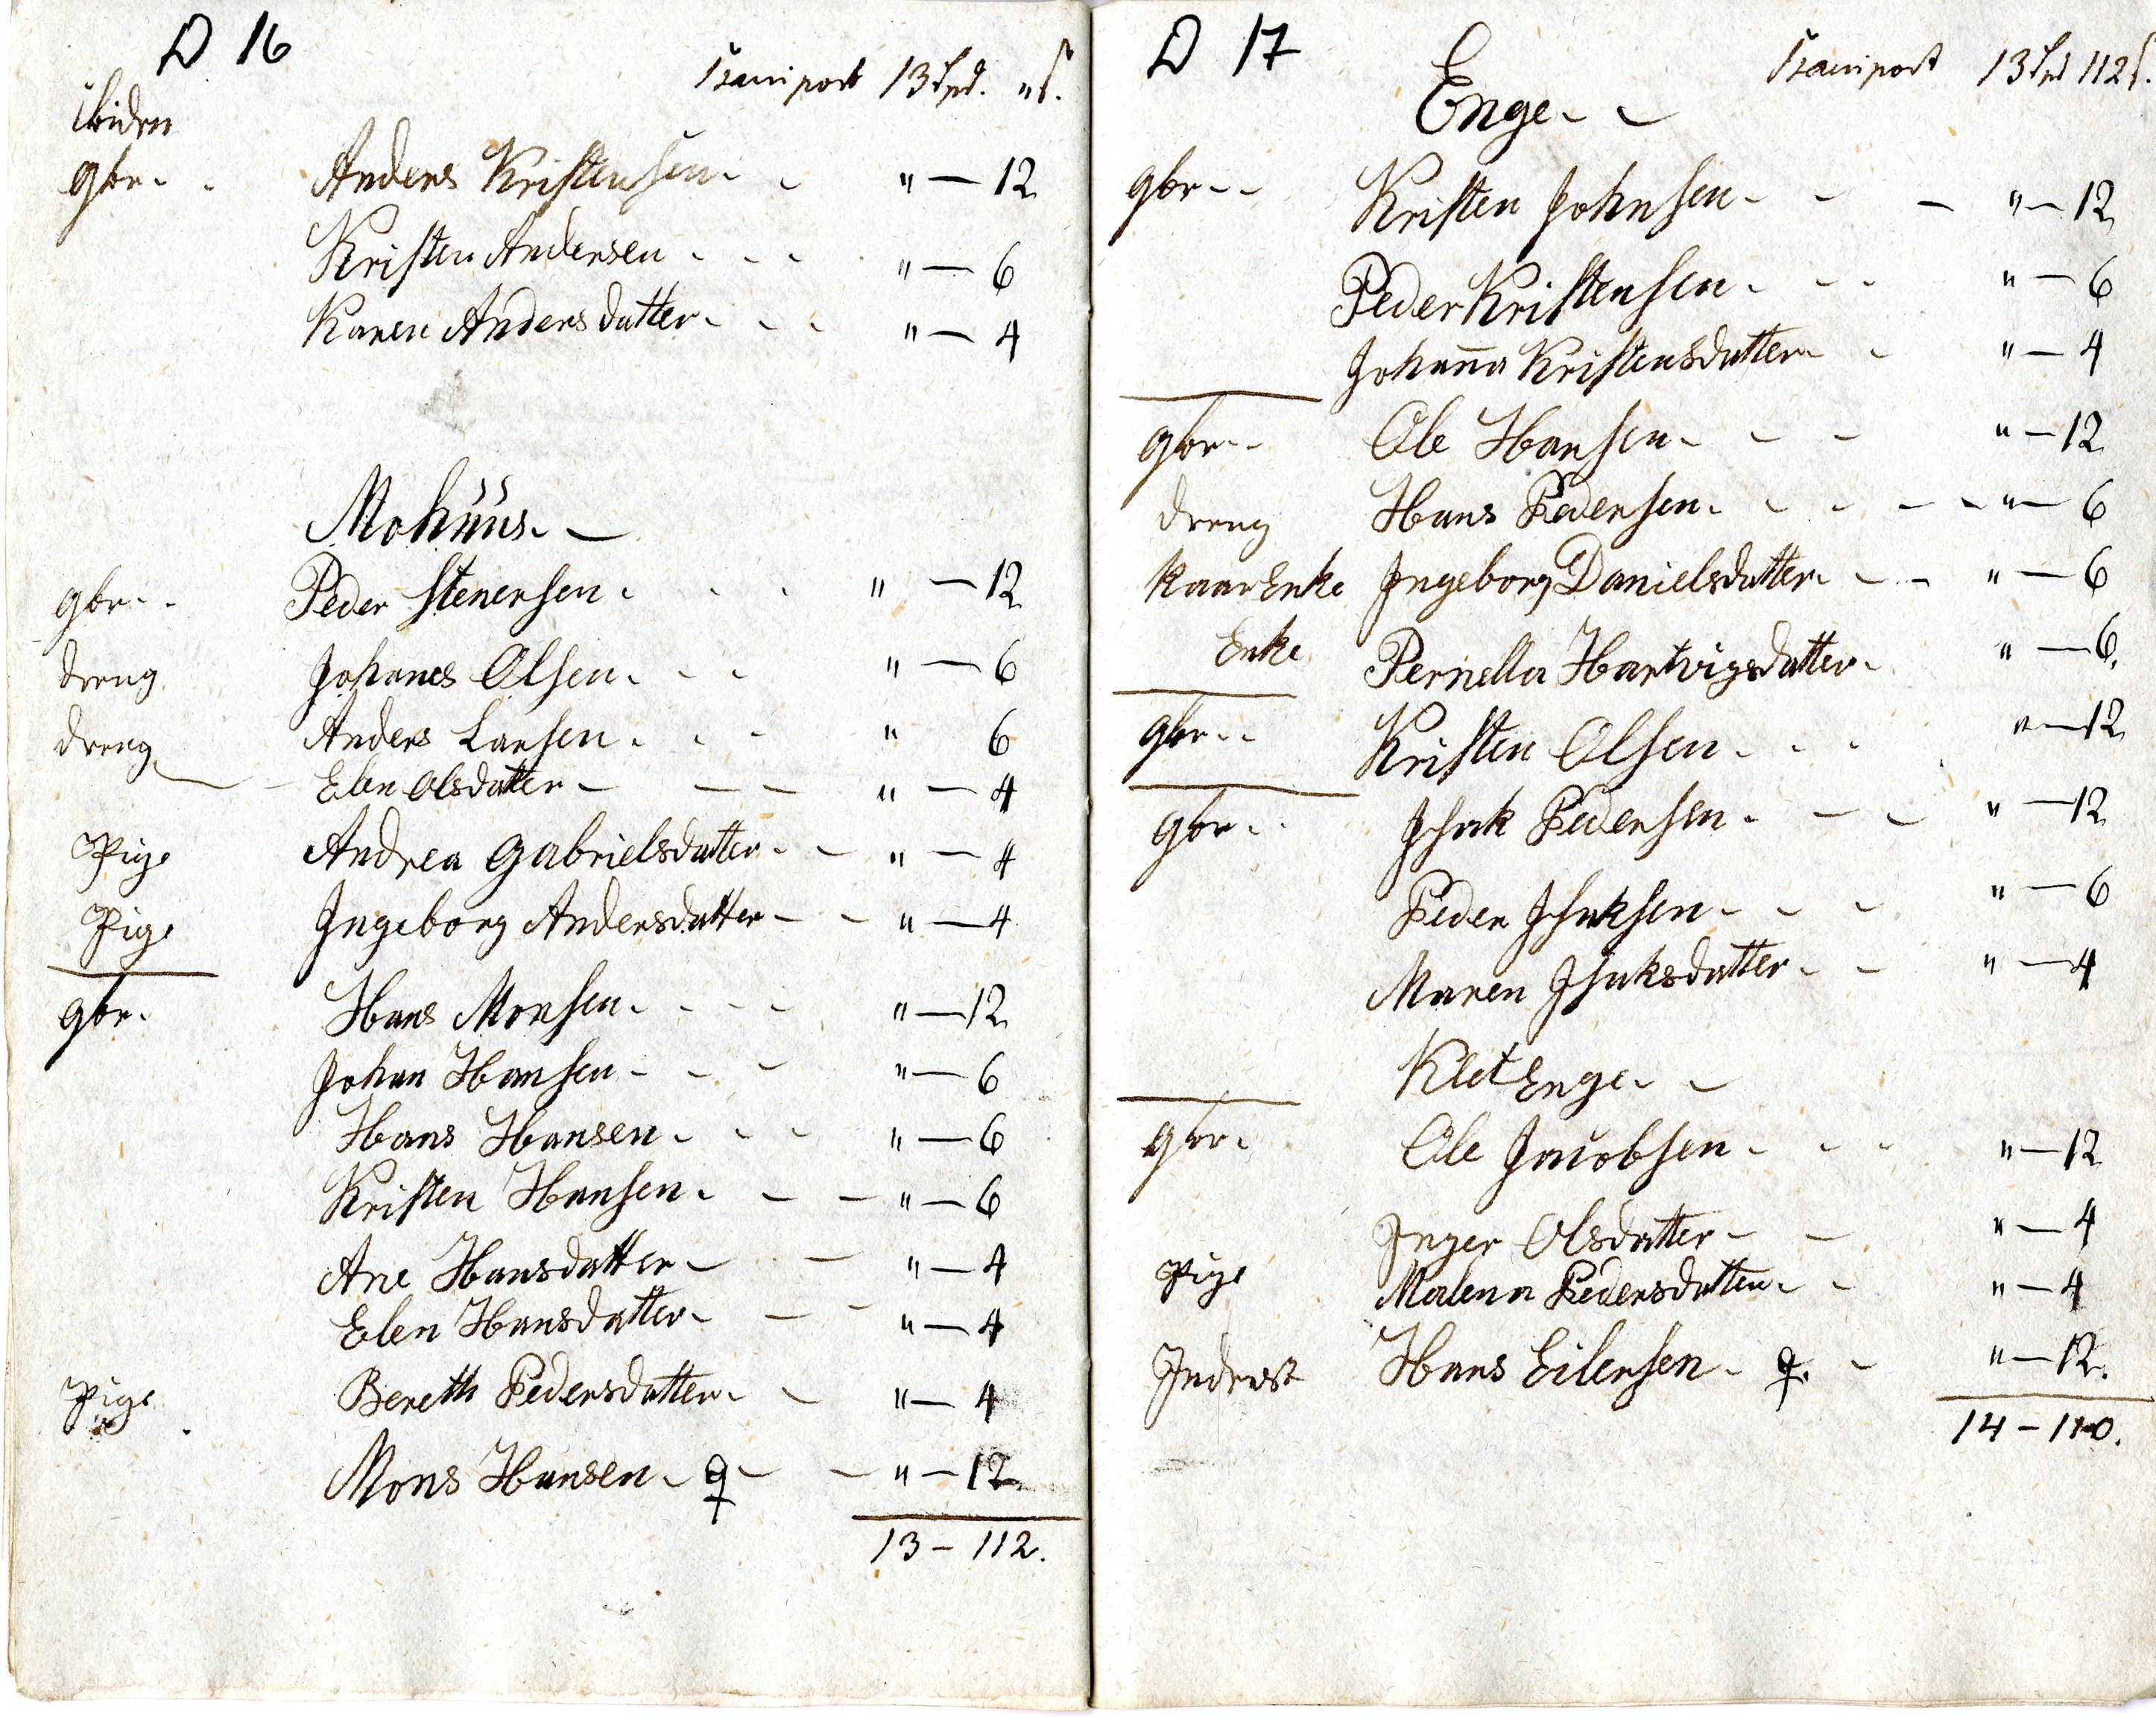 D 16
Transport 13 Spd. " s.
ibiden
gbr. . Anders Kristensen . . " — 12
Kristen Andersen . . . " — 6
Karen Andersdatter . . . " — 4
Mohuus. —
gbr. . Peder Stenersen . . . " — 12
dreng Johanes Olsen . . . " — 6
dreng Anders Larsen . . . " 6
Elen Olsdatter — — — " — 4
Pige Andrea Gabrielsdatter . . " — 4
Pige Ingeborg Andersdatter - - " — 4
gbr. Hans Monsen . . . . " — 12
Johan Hansen - - - " — 6
Hans Hansen . . . " — 6
Kristen Hansen . — — " — 6
Ane Hansdatter — — " — 4
Elen Hansdatter — — " — 4
Pige Bereth Pedersdatter . . " — 4
Mons Hansen - ♀ — — " — 12
13 — 112.
D 17
Transport 13 Spd 112 s.
Enge. —
gbr - - Kristen Johnsen - - — " — 12
Peder Kristensen . . . " — 6
Johan̄a Kristensdatter . . " — 4
gbr - - Ole Hansen - - - " — 12
dreng Hans Pedersen . . . - - " — 6
KaarEnke Ingeborg Danielsdatter . - - " — 6
Enke Pernella Hartvigsdatter . " — 6.
gbr. . Kristen Olsen . . . " — 12
gbr. . Isak Pedersen . — - " — 12
Peder Isaksen - - - " — 6
Maren Isaksdatter . - " — 4
KletEnge. —
gbr. Ole Jacobsen . . . " — 12
Inger Olsdatter - — " — 4
Pige Malena Pedersdatter . . " — 4
Inderst Hans Eilersen - ♀. - " — 12.
14 — 110.